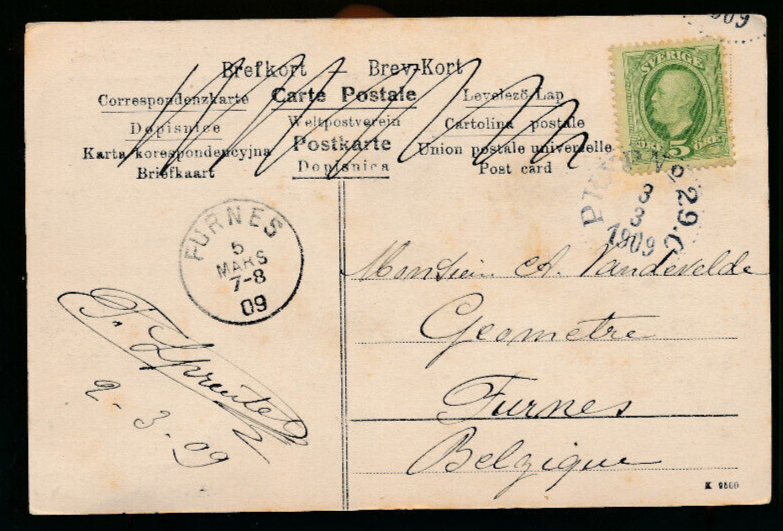 09
Brefkort — Brev-Kort
Correspondenzkarte Carte Postale Levelező Lap
Dopisnice Weltpostverein Cartolina postale
Karta korespondencyjna Postkarte Union postale universelle
Briefkaart Dopisnica Post card
SVERIGE
5
29.C
3
3
1909
FURNES
5
MARS
7-8
09
Monsieur A. Vandevelde
Geometre
Furnes
Belgique
2-3-09
K 9660